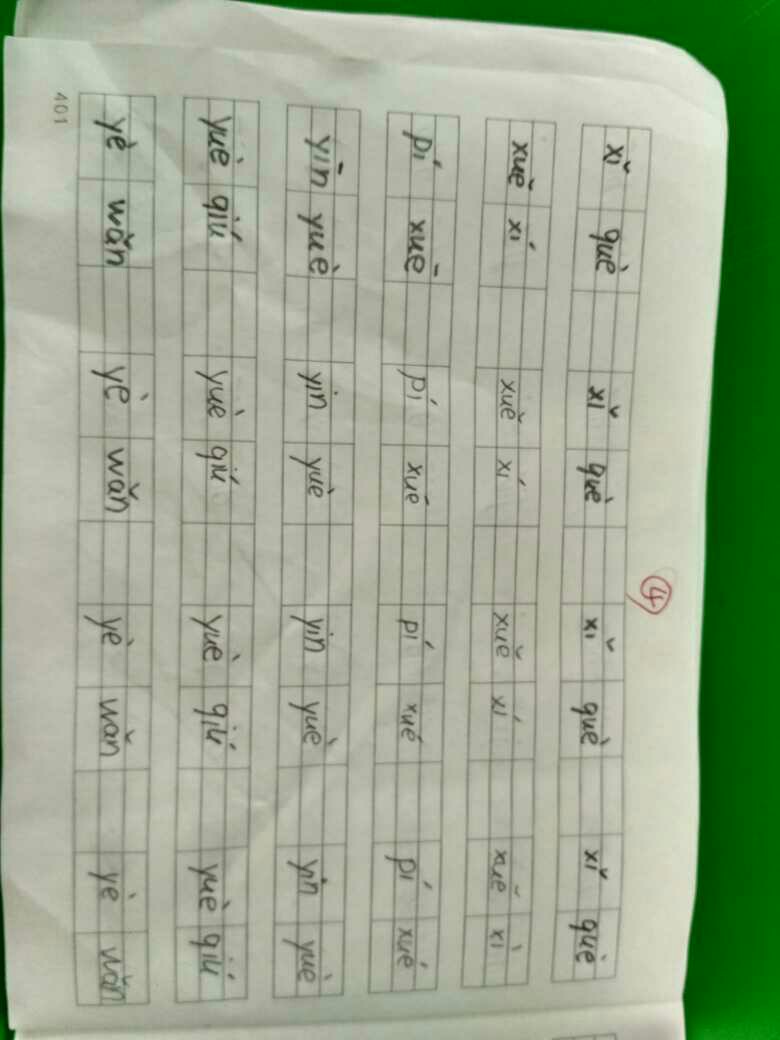 ④
xǐ què xǐ què xǐ què xǐ què
xuě xí xuě xí xuě xí xuě xì
pí xuē pí xué pí xué pí xué
yīn yuè yin yuè yin yuè yin yuè
yuè qiú yuè qiú yuè qiú yuè qiú
yè wǎn yè wǎn yè wǎn yè wǎn
401